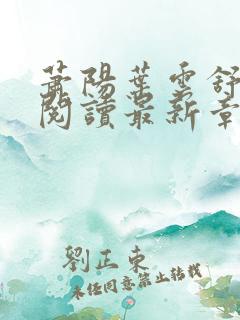 蕭陽葉雲舒
閱讀最新章
劉正東
未经同意禁止转载